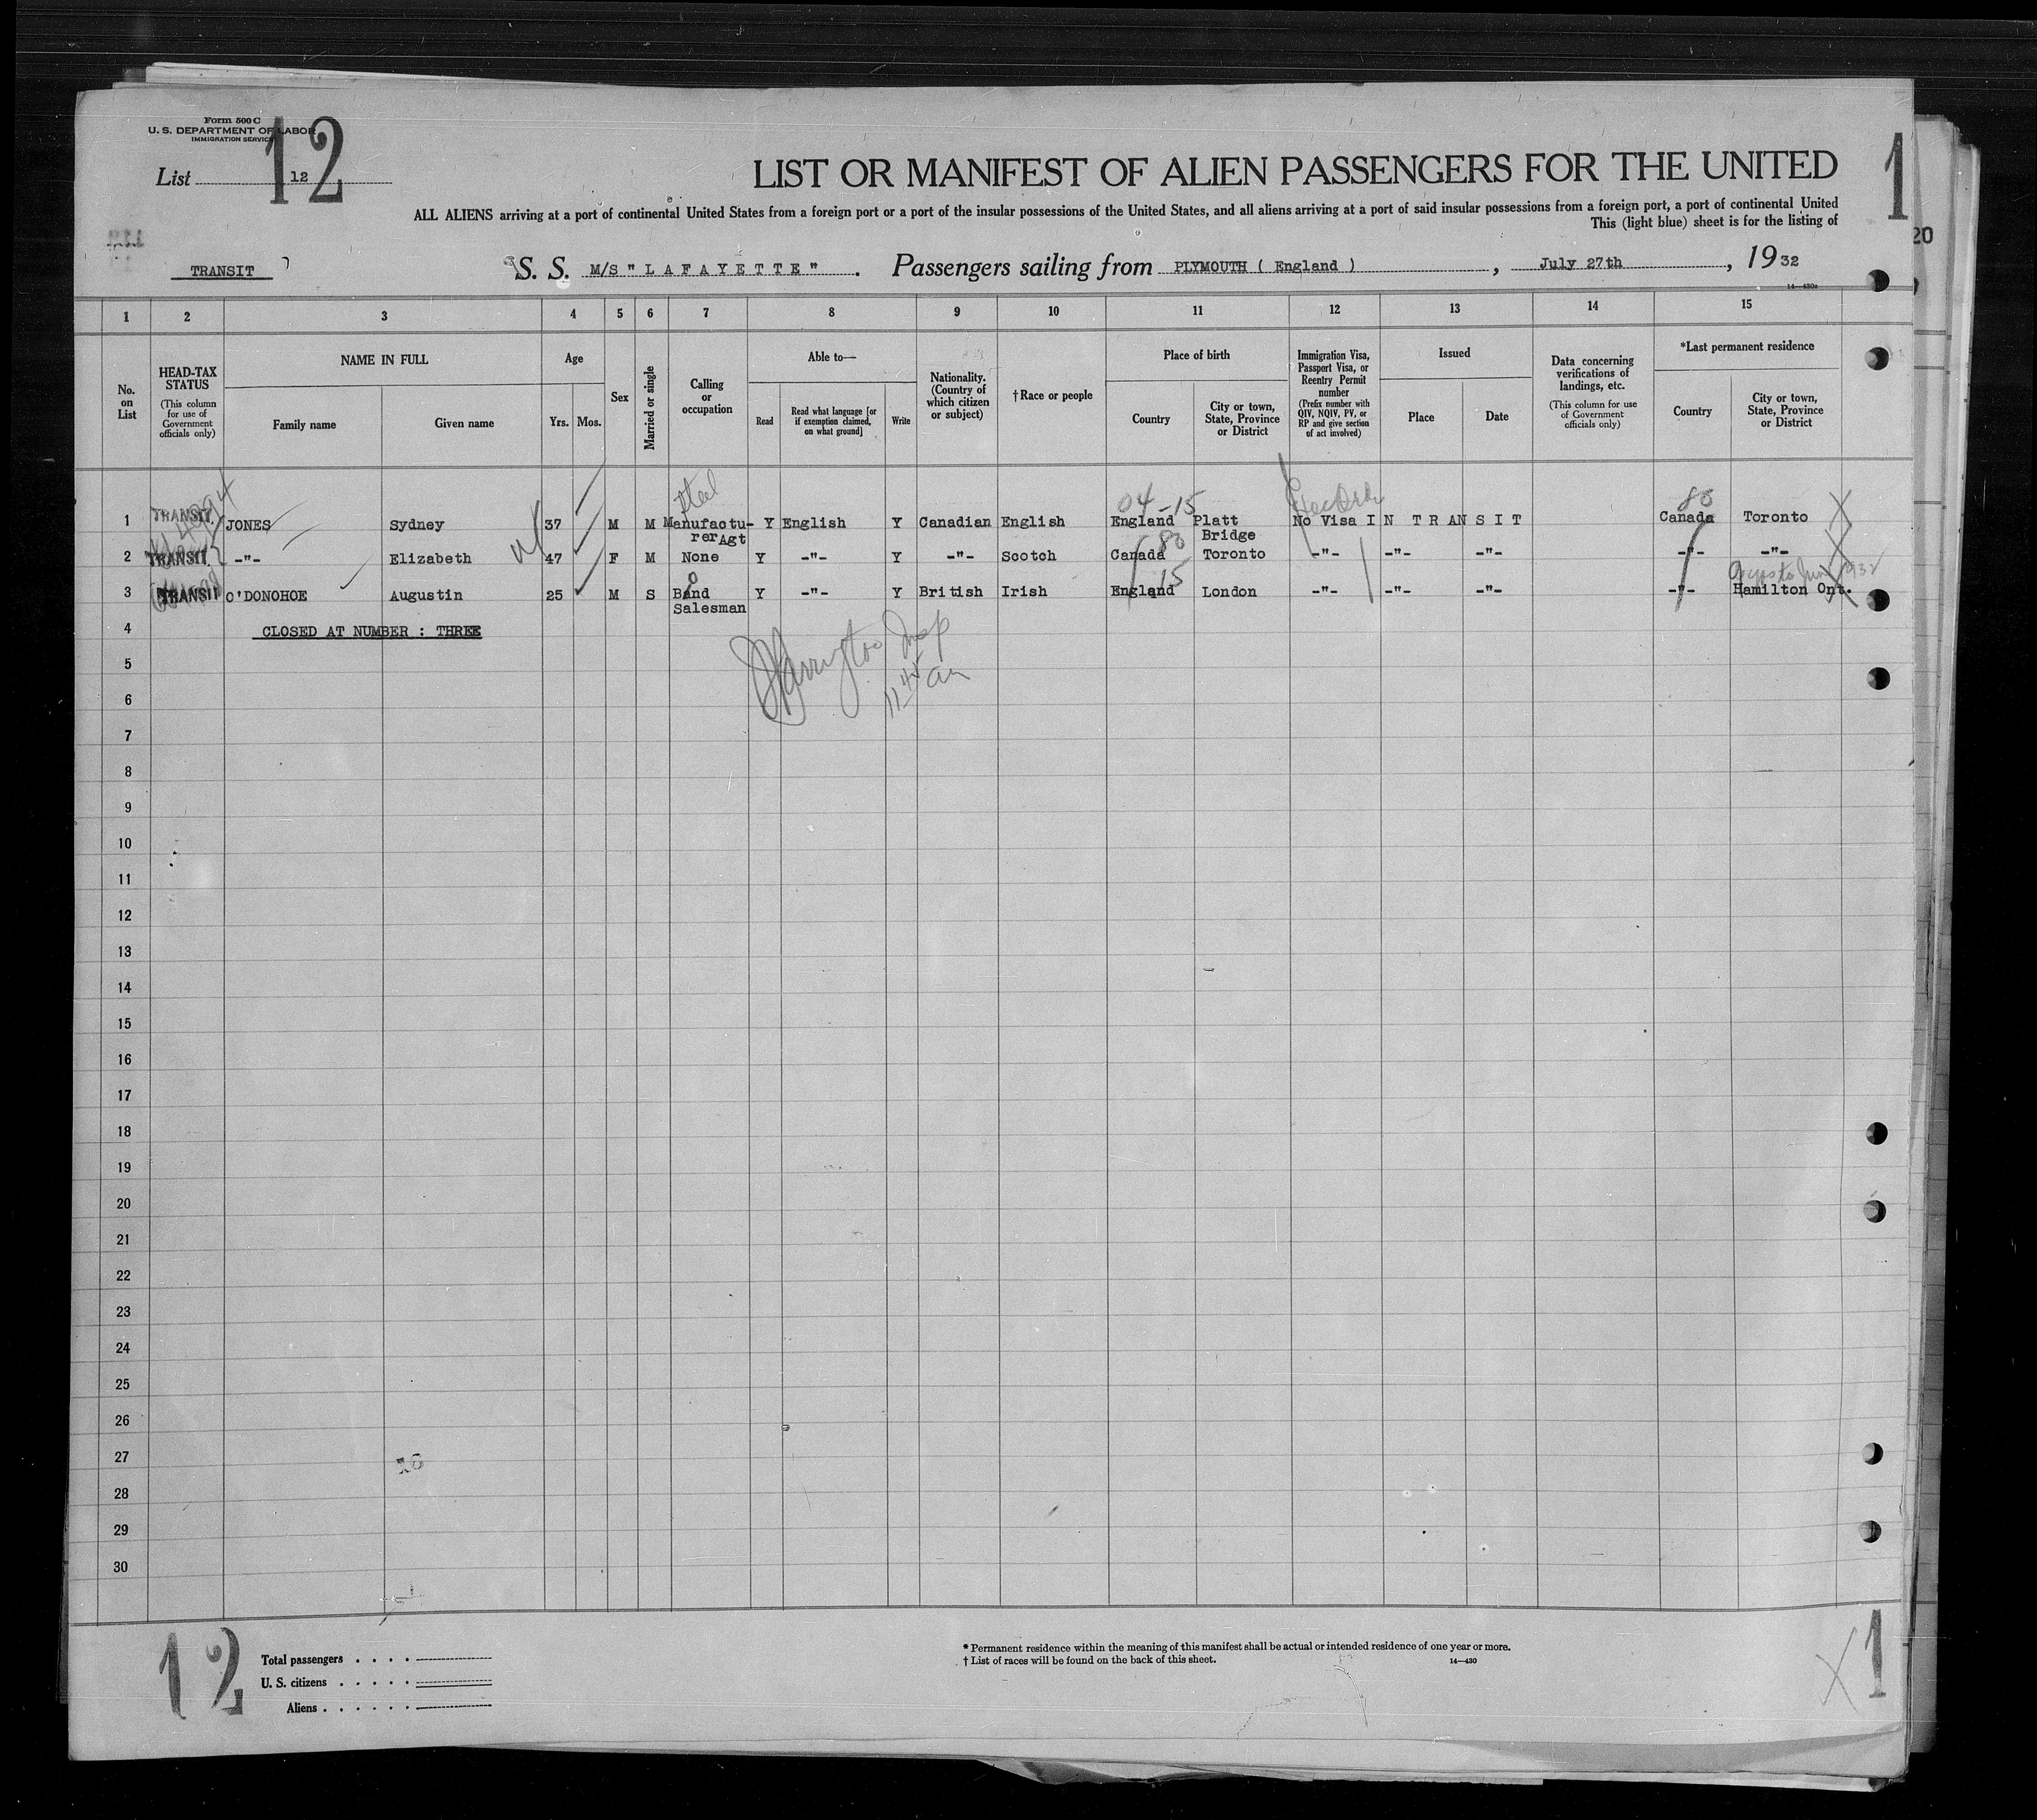 Form 500 C
U. S. DEPARTMENT OF LABOR
IMMIGRATION SERVICE
12
List 12
LIST OR MANIFEST OF ALIEN PASSENGERS FOR THE UNITED
1
ALL ALIENS arriving at a port of continental United States from a foreign port or a port of the insular possessions of the United States, and all aliens arriving at a port of said insular possessions from a foreign port, a port of continental United
This (light blue) sheet is for the listing of
20
TRANSIT
S. S. M/S " L A F A Y E T T E " . Passengers sailing from PLYMOUTH ( England ) , July 27th , 19 32
1 2 3 4 5 6 7 8 9 10 11 12 13 14 15
No. on List
HEAD-TAX STATUS (This column for use of Government officials only)
NAME IN FULL
Family name
Given name
Age
Yrs.
Mos.
Sex
Married or single
Calling or occupation
Able to—
Read
Read what language [or if exemption claimed, on what ground]
Write
Nationality. (Country of which citizen or subject)
†Race or people
Place of birth
Country
City or town, State, Province or District
Immigration Visa, Passport Visa, or Reentry Permit number (Prefix number with QIV, NQIV, PV, or RP and give section of act involved)
Issued
Place
Date
Data concerning verifications of landings, etc. (This column for use of Government officials only)
*Last permanent residence
Country
City or town, State, Province or District
steel 04-15 80
1 TRANSIT. JONES Sydney 37 M M Manufacturer Agt Y English Y Canadian English England Platt Bridge No Visa I N T R A N S I T Canada Toronto
80
2 TRANSIT. -"- Elizabeth 47 F M None Y -"- Y -"- Scotch Canada Toronto -"- -"- -"- -"- -"-
15 1932
3 TRANSIT O'DONOHOE Augustin 25 M S Bond Salesman Y -"- Y British Irish England London -"- -"- -"- -"- Hamilton Ont.
4 CLOSED AT NUMBER : THREE
Harrington Insp
11 45 am
5
6
7
8
9
10
11
12
13
14
15
16
17
18
19
20
21
22
23
24
25
26
27
28
29
30
12
Total passengers
U. S. citizens
Aliens
* Permanent residence within the meaning of this manifest shall be actual or intended residence of one year or more.
† List of races will be found on the back of this sheet.
14—430
X 1